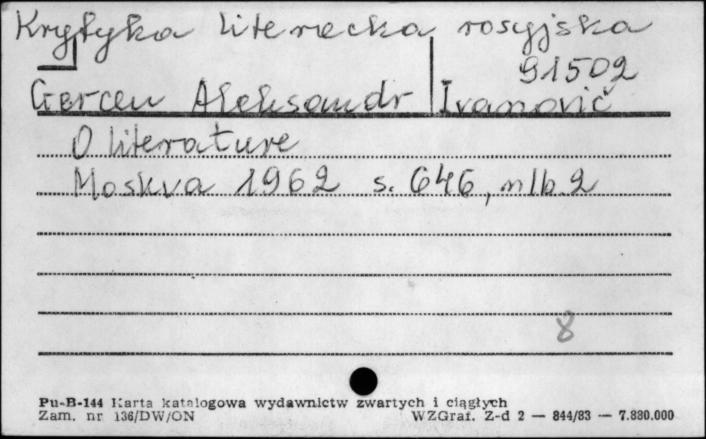 Krytyka literacka rosyjska
91502
Gercen Aleksandr Ivanovič
O literature
Moskva 1962 s. 646, nlb 2
8
Pu-B-144 Karta katalogowa wydawnictw zwartych i ciągłych
Zam. nr 136/DW/ON WZGraf. Z-d 2 — 844/83 — 7.830.000